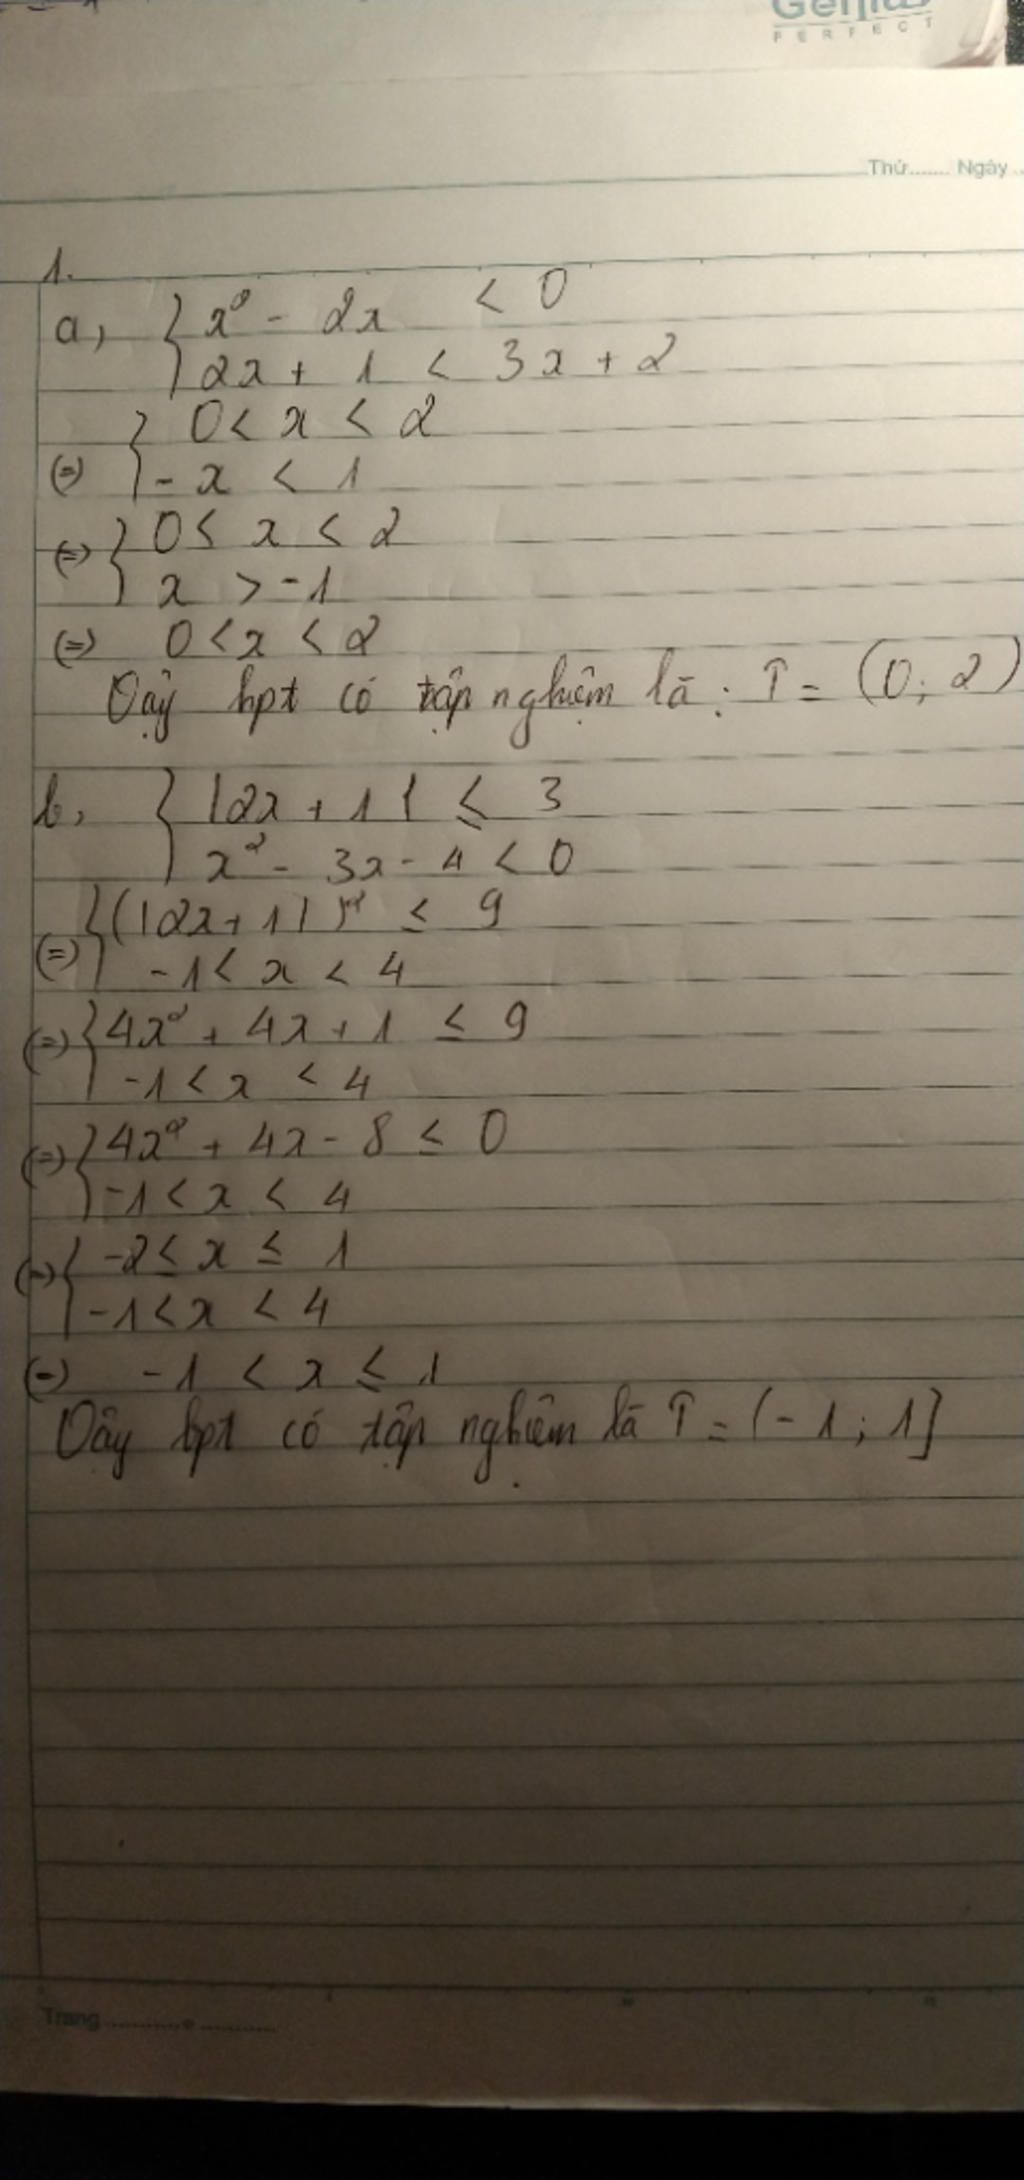 Genius
PERFECT
Thứ....... Ngày ..
1.
a, { x² - 2x < 0
2x + 1 < 3x + 2
(=) { 0 < x < 2
-x < 1
(=) { 0 ≤ x < 2
x > -1
(=) 0 < x < 2
Vậy hpt có tập nghiệm là: T = (0; 2)
b, { |2x + 1| ≤ 3
x² - 3x - 4 < 0
(=) { (|2x + 1|)² ≤ 9
-1 < x < 4
(=) { 4x² + 4x + 1 ≤ 9
-1 < x < 4
(=) { 4x² + 4x - 8 ≤ 0
-1 < x < 4
(=) { -2 ≤ x ≤ 1
-1 < x < 4
(=) -1 < x ≤ 1
Vậy hpt có tập nghiệm là T = (-1; 1]
Trang